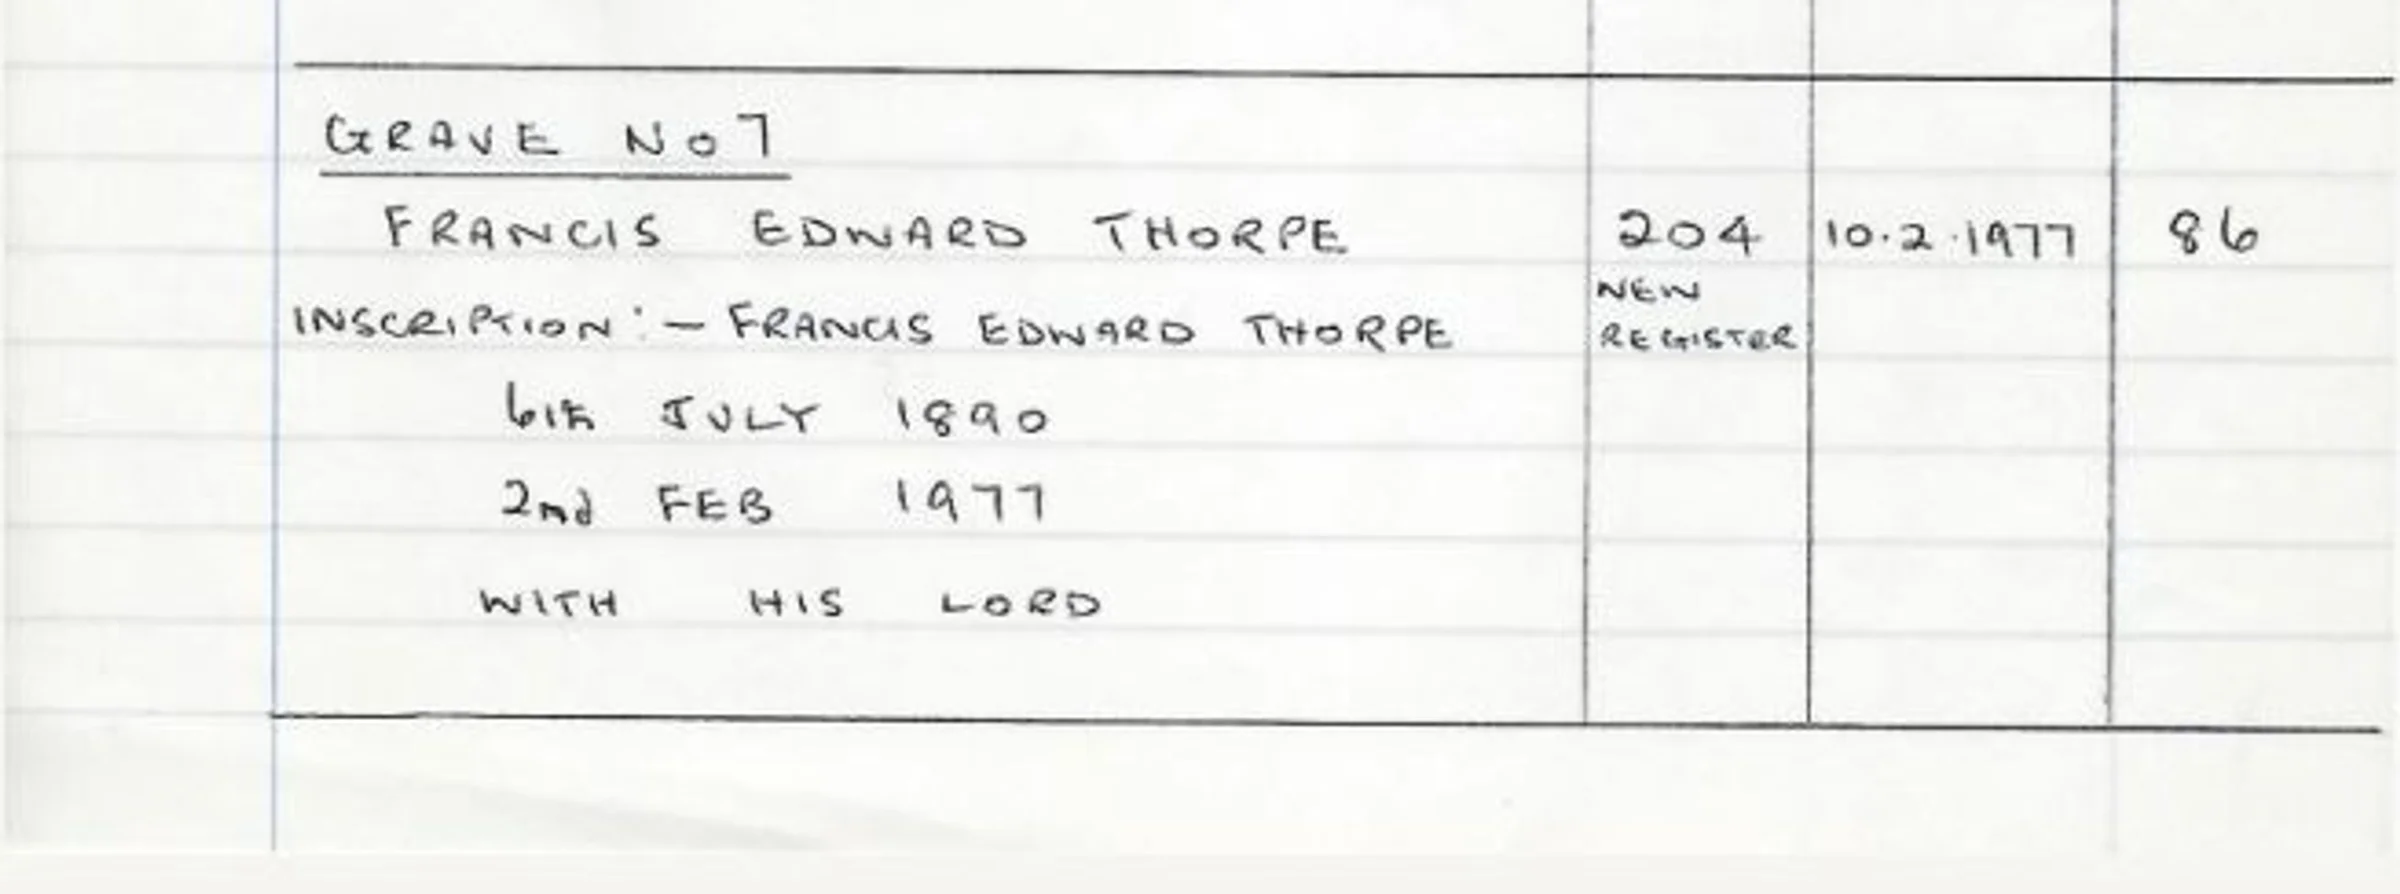 GRAVE No 7
FRANCIS EDWARD THORPE 204 10.2.1977 86
NEW
INSCRIPTION :- FRANCIS EDWARD THORPE REGISTER
6th JULY 1890
2nd FEB 1977
WITH HIS LORD